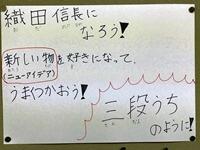 織田信長に
なろう!
新しい物を好きになって、
(ニューアイデア)
うまくつかおう!
三段うち
のように!